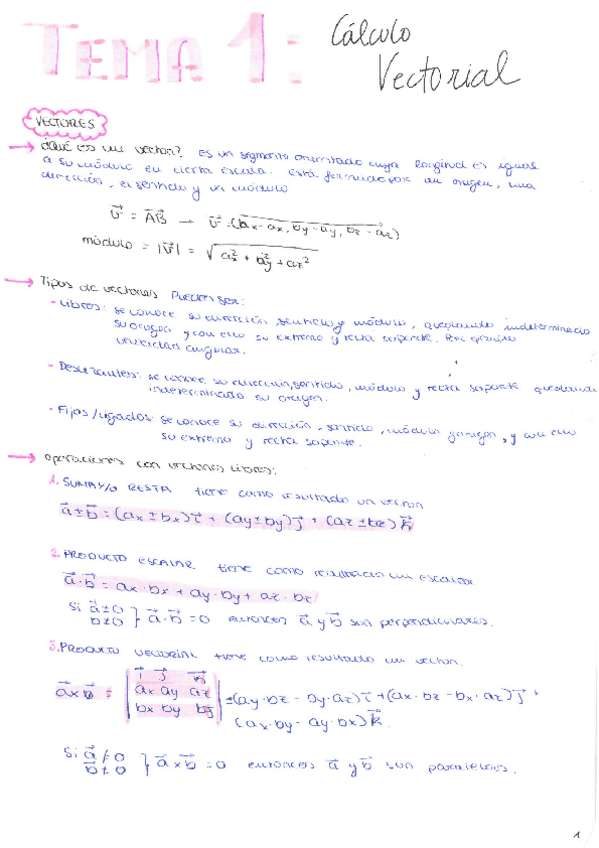 TEMA 1: Cálculo Vectorial
VECTORES
→ ¿Qué es un vector? Es un segmento orientado cuya longitud es igual
a su módulo en cierta escala. Está formado por un origen, una
dirección, el sentido y un módulo
v⃗ = A⃗B⃗ → v⃗ = (bx - ax, by - ay, bz - az)
módulo = |v⃗| = √ax² + ay² + az²
→ Tipos de vectores Pueden ser:
- Libres: se conoce su dirección, sentido y módulo, quedando indeterminado
su origen y con ello su extremo y recta soporte.
angular.
- Deslizantes: se conoce su dirección, sentido, módulo y recta soporte quedando
indeterminado su origen.
- Fijos/ligados: se conoce su dirección, sentido, módulo y origen, y con ello
su extremo y recta soporte.
→ operaciones con vectores libres:
1. SUMA Y/O RESTA tiene como resultado un vector
a⃗ ± b⃗ = (ax ± bx) i⃗ + (ay ± by) j⃗ + (az ± bz) k⃗
2. PRODUCTO ESCALAR tiene como resultado un escalar
a⃗ · b⃗ = ax · bx + ay · by + az · bz
Si a⃗ ≠ 0
b⃗ ≠ 0 } a⃗ · b⃗ = 0 entonces a⃗ y b⃗ son perpendiculares.
3. PRODUCTO VECTORIAL tiene como resultado un vector.
i⃗ j⃗ k⃗
a⃗ x b⃗ = | ax ay az | = (ay · bz - by · az) i⃗ + (ax · bz - bx · az) j⃗ +
bx by bz
(ax · by - ay · bx) k⃗.
Si a⃗ ≠ 0
b⃗ ≠ 0 } a⃗ x b⃗ = 0 entonces a⃗ y b⃗ son paralelos.
1